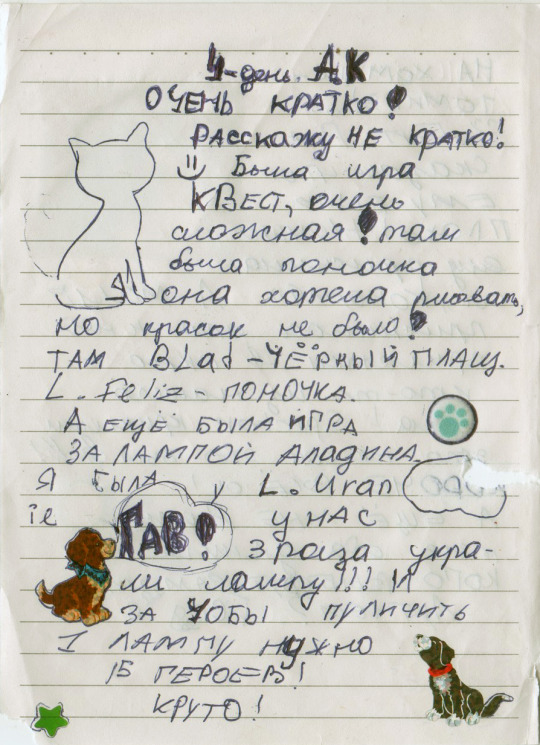 4-день. ДК
ОЧЕНЬ КРАТКО!
РАССКАЖУ НЕ КРАТКО!
Была игра
КВЕСТ, очень
сложная! там
была поночка
она хотела рисовать,
но красок не было!
ТАМ BLad-ЧЁРНЫЙ ПЛАЩ.
L. Feliz-ПОНОЧКА.
А ЕЩЁ БЫЛА ИГРА
ЗА ЛАМПОЙ АЛАДИНА
Я БЫЛА у L. Uran
ГАВ! У НАС
3 раза укра-
ли лампу!!! И
ЗА ЧОБЫ ПУЛИЧИТЬ
1 ЛАМПУ НУЖНО
15 ГЕРОЕВ!
КРУТО!